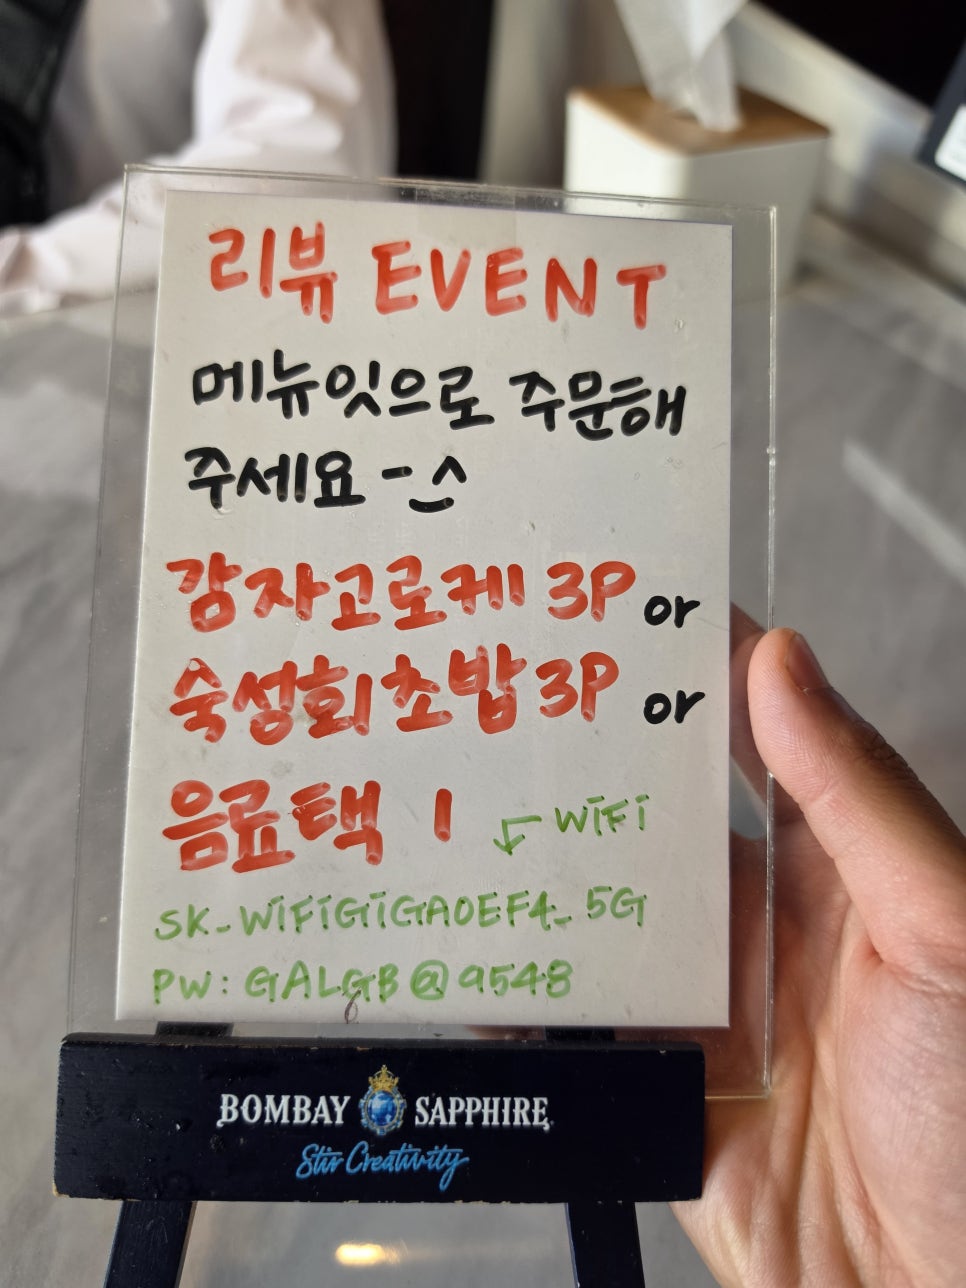 리뷰 EVENT
메뉴잇으로 주문해
주세요
감자고로케 3P or
숙성회초밥 3P or
음료택 1
WiFi
SK_WiFiGiGA0EF4_5G
PW: GALGB@9548
6
BOMBAY SAPPHIRE
Stir Creativity